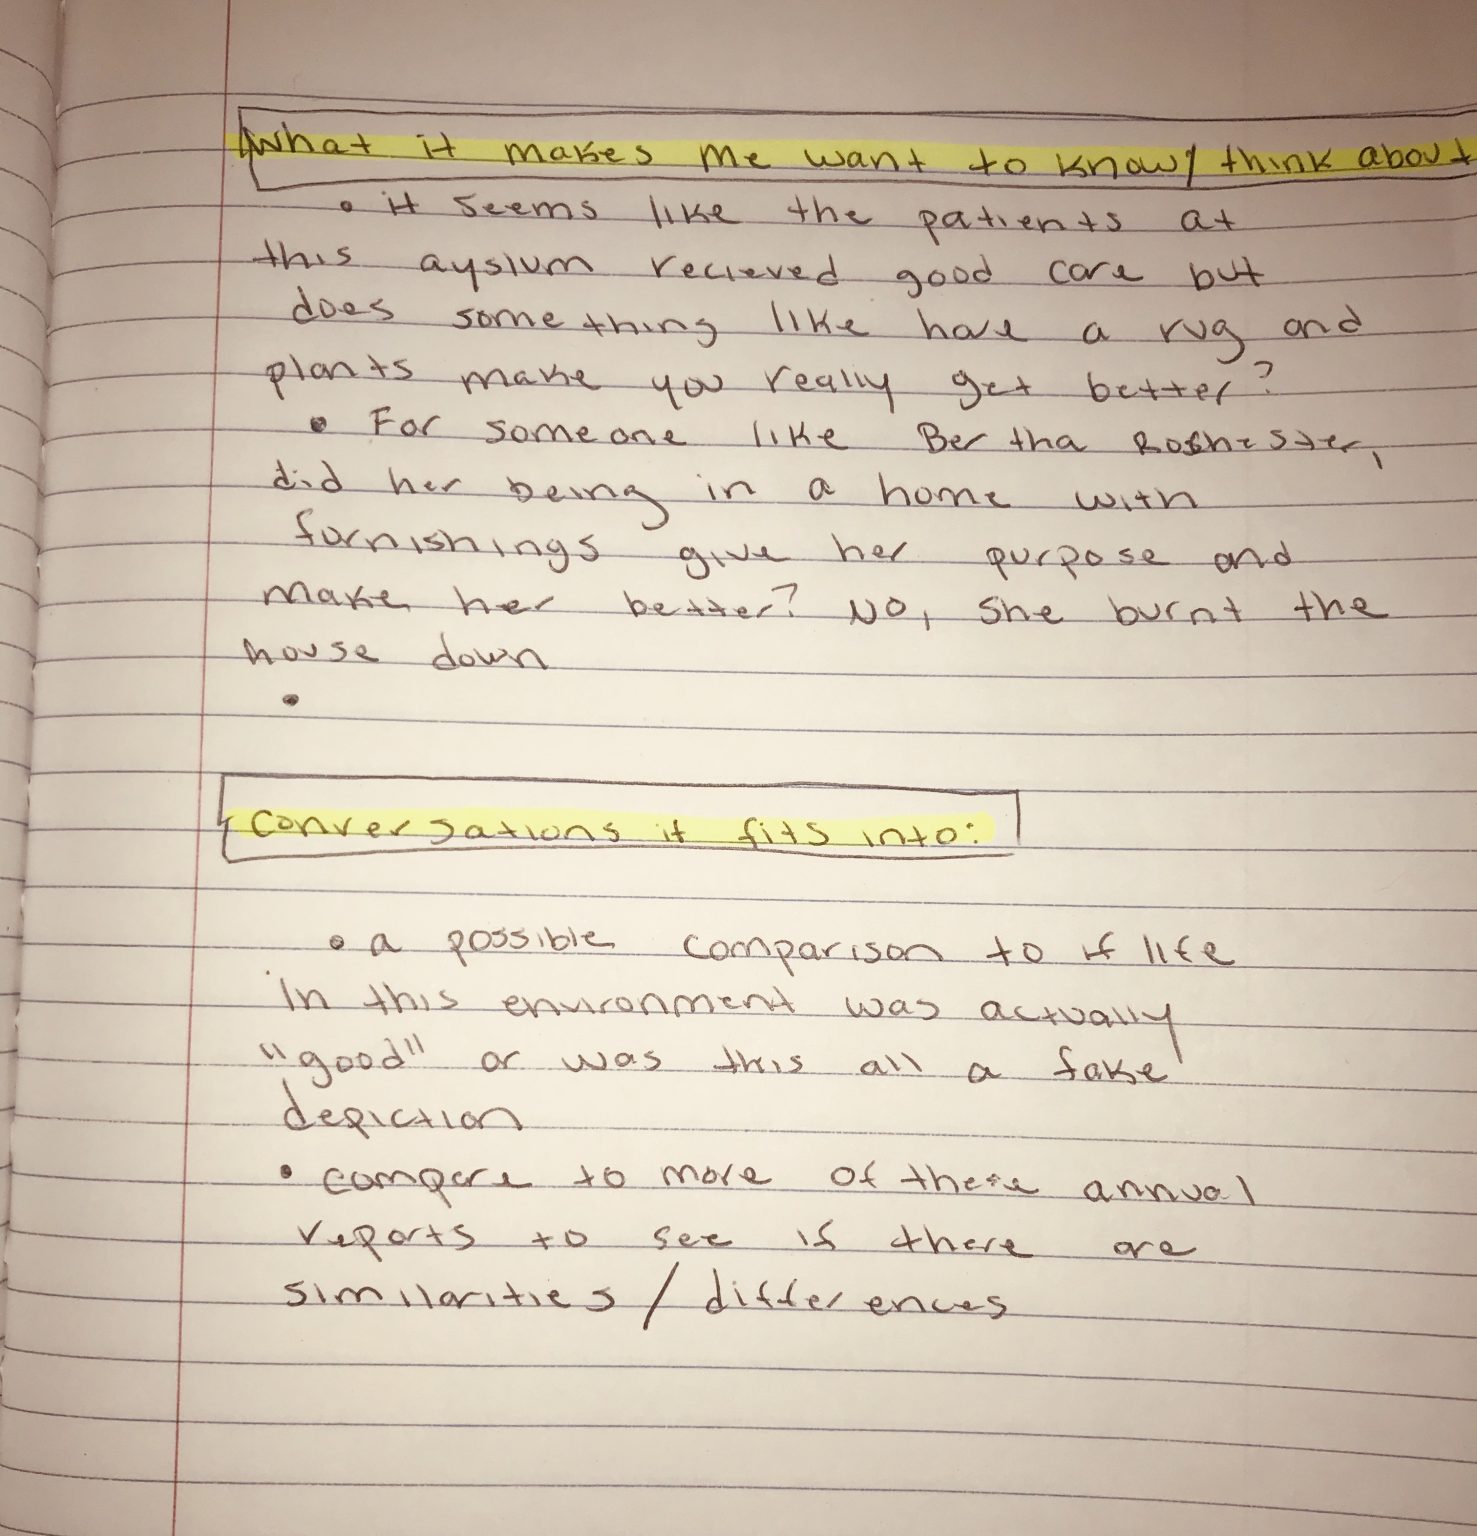 What it makes me want to know/think about
• it seems like the patients at
this ayslum recieved good care but
does something like have a rug and
plants make you really get better?
• For someone like Bertha Rochester,
did her being in a home with
furnishings give her purpose and
make her better? No, she burnt the
house down
•
Conversations it fits into:
• a possible comparison to if life
in this environment was actually
"good" or was this all a fake
depiction
• compare to more of these annual
reports to see if there are
similarities/differences